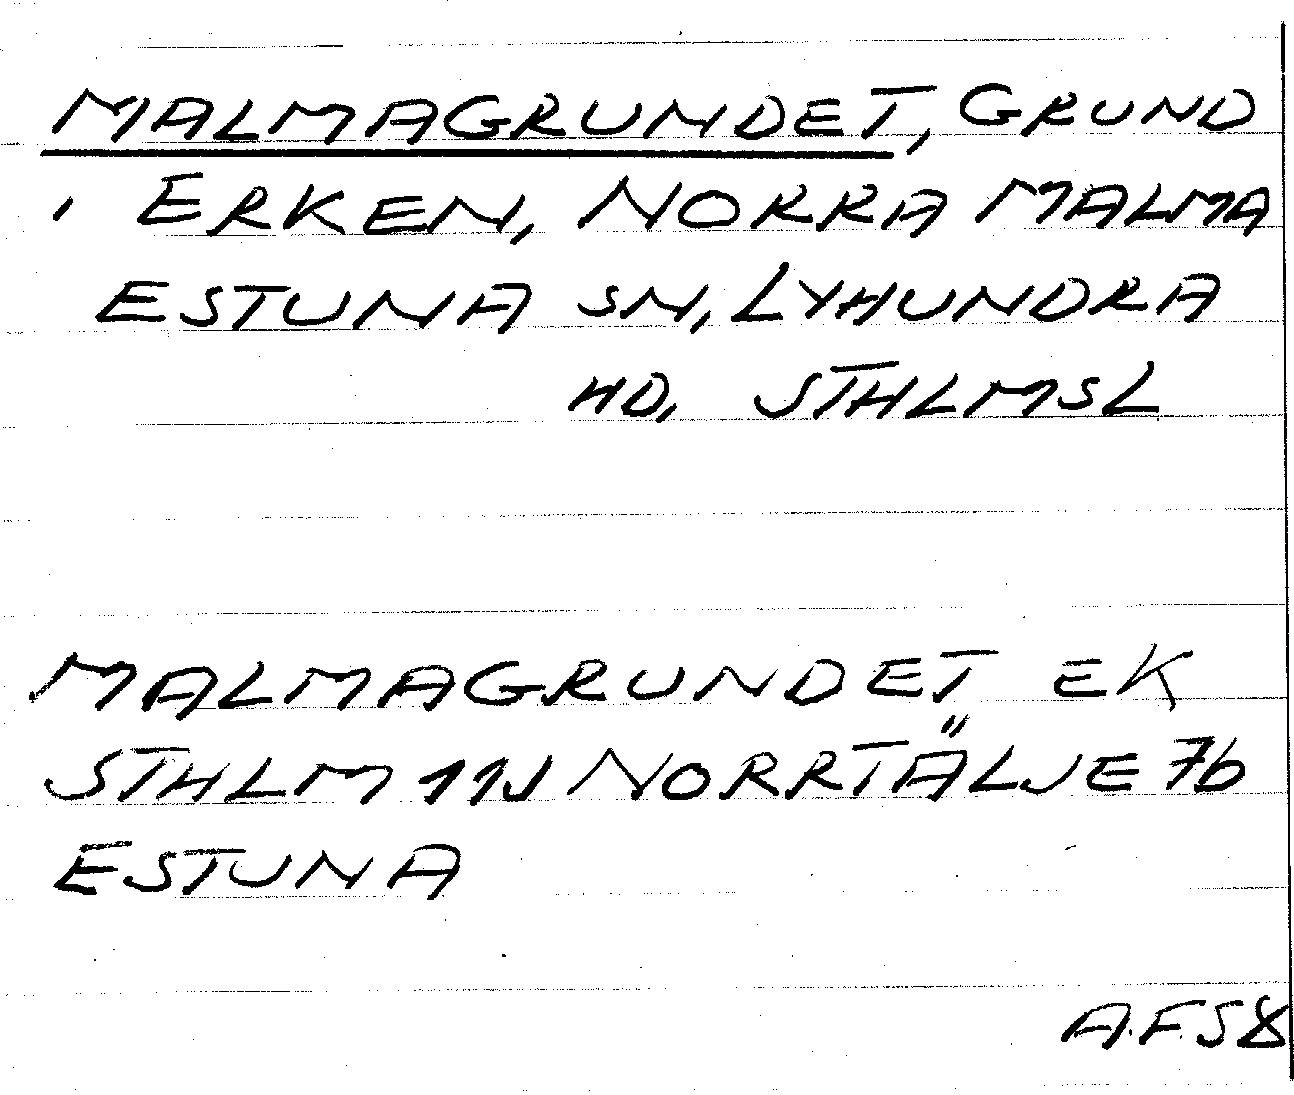 MALMAGRUNDET, GRUND
I ERKEN, NORRA MALMA
ESTUNA SN, LYHUNDRA
HD, STHLMSL
MALMAGRUNDET EK
STHLM 11J NORRTÄLJE 7b
ESTUNA
A.F.58